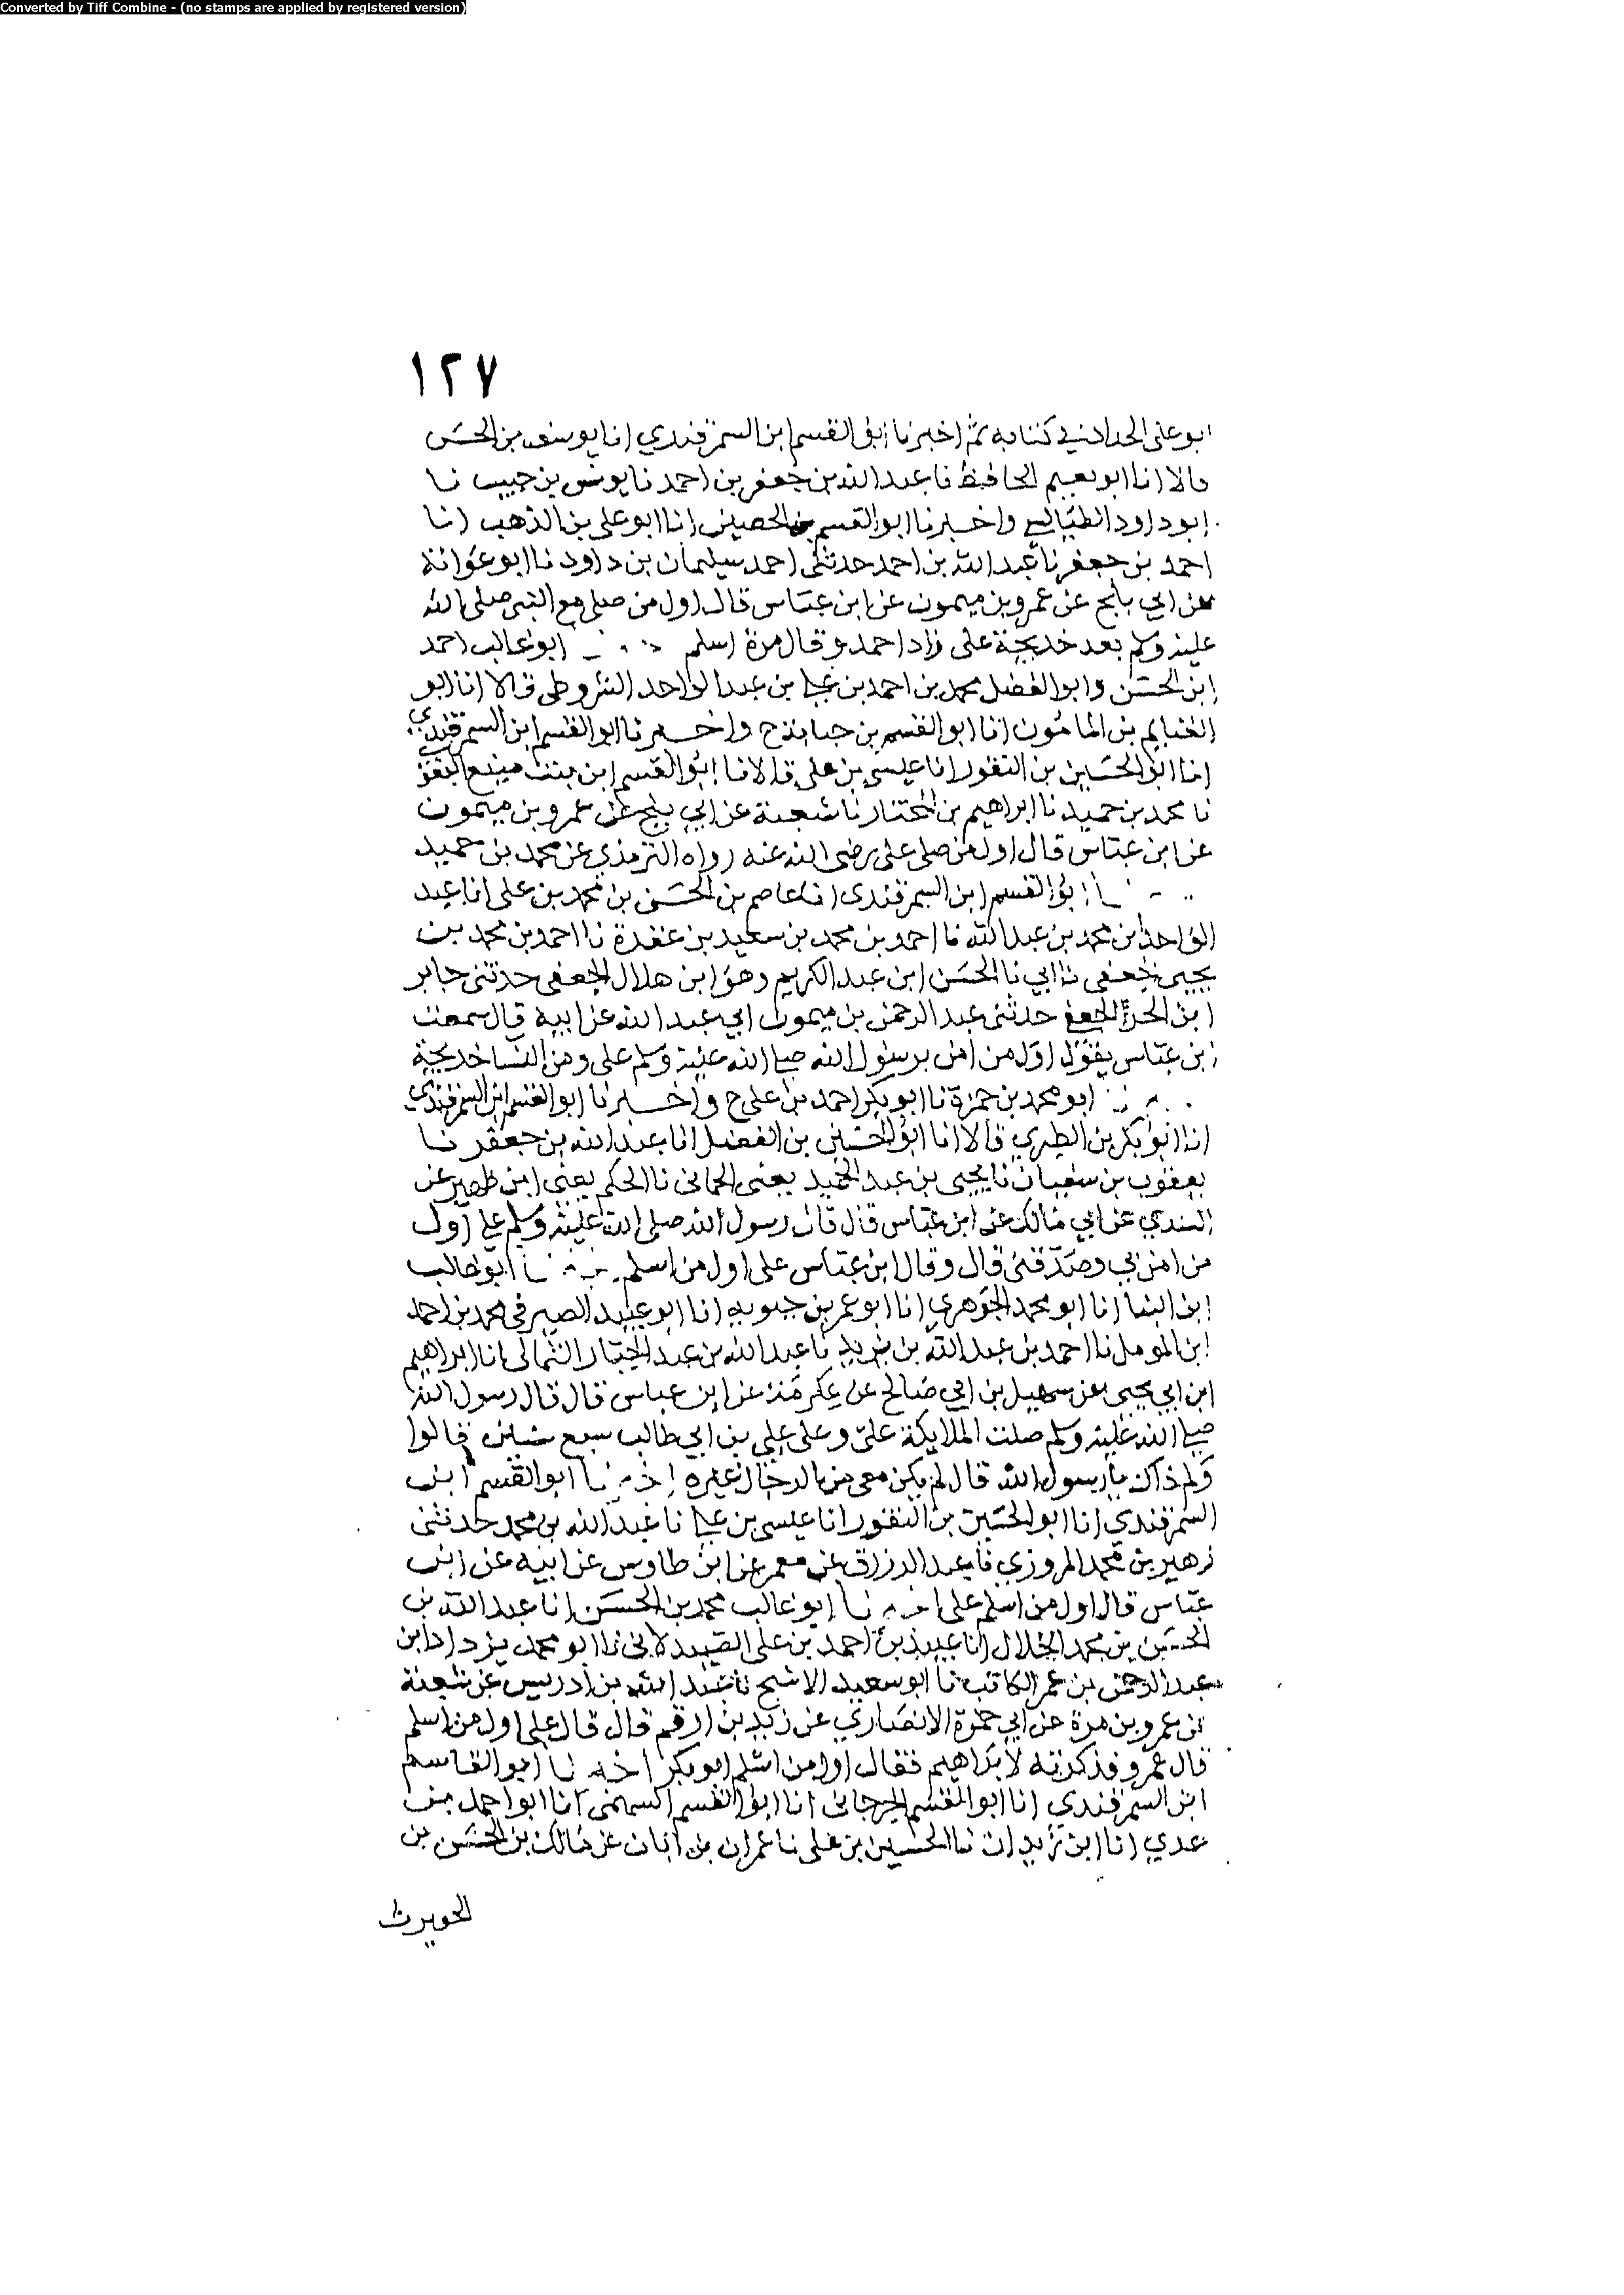 Converted by Tiff Combine - (no stamps are applied by registered version)
١٢٧
ابو على الحداد في كتابه ثم اخبرنا ابو القسم ابن السمرقندي انا يوسف بن الحسن
قالا انا ابو نعيم الحافظ نا عبد الله بن جعفر بن احمد نا يونس بن حبيب نا
ابو داود الطيالسي واخبرنا ابو القسم بن الحصين انا ابو على بن المذهب انا
احمد بن جعفر نا عبد الله بن احمد حدثني احمد سليمان بن داود نا ابو عوانة
عن ابي بلج عن عمرو بن ميمون عن ابن عباس قال اول من صلى مع النبي صلى الله
عليه وسلم بعد خديجة على زاد احمد وقال مرة اسلم ابو غالب احمد
ابن الحسن وابو الفضل محمد بن احمد بن علي بن عبد الواحد الشروطى قالا انا ابو
الغنايم بن المامون انا ابو القسم بن حبابة ح واخبرنا ابو القسم ابن السمرقندي
انا ابو الحسين بن النقور انا عيسى بن على قالا نا ابو القسم ابن بنت منيع البغوي
نا محمد بن حميد نا ابراهيم بن المختار نا شعبة عن ابي بلج عن عمرو بن ميمون
عن ابن عباس قال اول من صلى على رضى الله عنه رواه الترمذي عن محمد بن حميد
ابو القسم ابن السمرقندى انا عاصم بن الحسن بن محمد بن على انا عبد
الواحد بن محمد بن عبد الله نا احمد بن محمد بن سعيد بن عقدة نا احمد بن محمد بن
يحيى الجعفى نا ابي نا الحسن ابن عبد الكريم وهو ابن هلال الجعفى حدثنى جابر
ابن الحر الجعفي حدثنى عبد الرحمن بن ميمون ابي عبد الله عن ابيه قال سمعت
ابن عباس يقول اول من امن برسول الله صلى الله عليه وسلم على ومن النسا خديجة
ابو محمد بن حمزة نا ابو بكر احمد بن على ح واخبرنا ابو القسم ابن السمرقندي
انا ابو بكر بن الطبري قالا انا ابو الحسين بن الفضل انا عبد الله بن جعفر نا
يعقوب بن سفيان نا يحيى بن عبد الحميد يعنى الحمانى نا الحكم يعنى ابن ظهير عن
السدي عن ابي مالك عن ابن عباس قال قال رسول الله صلى الله عليه وسلم علي اول
من امن بي وصدقنى قال وقال ابن عباس على اول من اسلم ابو غالب
ابن البنا انا ابو محمد الجوهري انا ابو عمر بن حيويه انا ابو عبيد الصيرفى محمد بن احمد
ابن المومل نا احمد بن عبد الله بن يزيد نا عبد الله بن عبد الجبار الثمالى انا ابراهيم
ابن ابي يحيى عن سهيل بن ابي صالح عن عكرمة عن ابن عباس قال قال رسول الله
صلى الله عليه وسلم صلت الملايكة علىّ وعلى علي بن ابي طالب سبع سنين قالوا
ولم ذاك يا رسول الله قال لم يكن معى من الرجال غيره اخبرنا ابو القسم ابن
السمرقندي انا ابو الحسين بن النقور انا عيسى بن علي نا عبد الله بن محمد حدثنى
زهير بن محمد المروزي نا عبد الرزاق عن معمر عن ابن طاوس عن ابيه عن ابن
عباس قال اول من اسلم على اخبرنا ابو غالب محمد بن الحسن انا عبد الله بن
الحسين بن محمد الخلال انا عبيد بن احمد بن على الصيدلانى نا ابو محمد يزداد ابن
عبد الرحمن بن عمر الكاتب نا ابو سعيد الاشج نا عبد الله بن ادريس عن شعبة
عن عمرو بن مرة عن ابي حمزة الانصاري عن زيد بن ارقم قال قال علي اول من اسلم
قال عمرو فذكرته لابراهيم فقال اول من اسلم ابو بكر اخبرنا ابو القاسم
ابن السمرقندي انا ابو القسم الجرجانى انا ابو القسم السهمى انا ابو احمد بن
عدي انا ابن زيدان نا الحسين بن على نا عمران بن ابان عن مالك بن الحسن بن
الحويرث